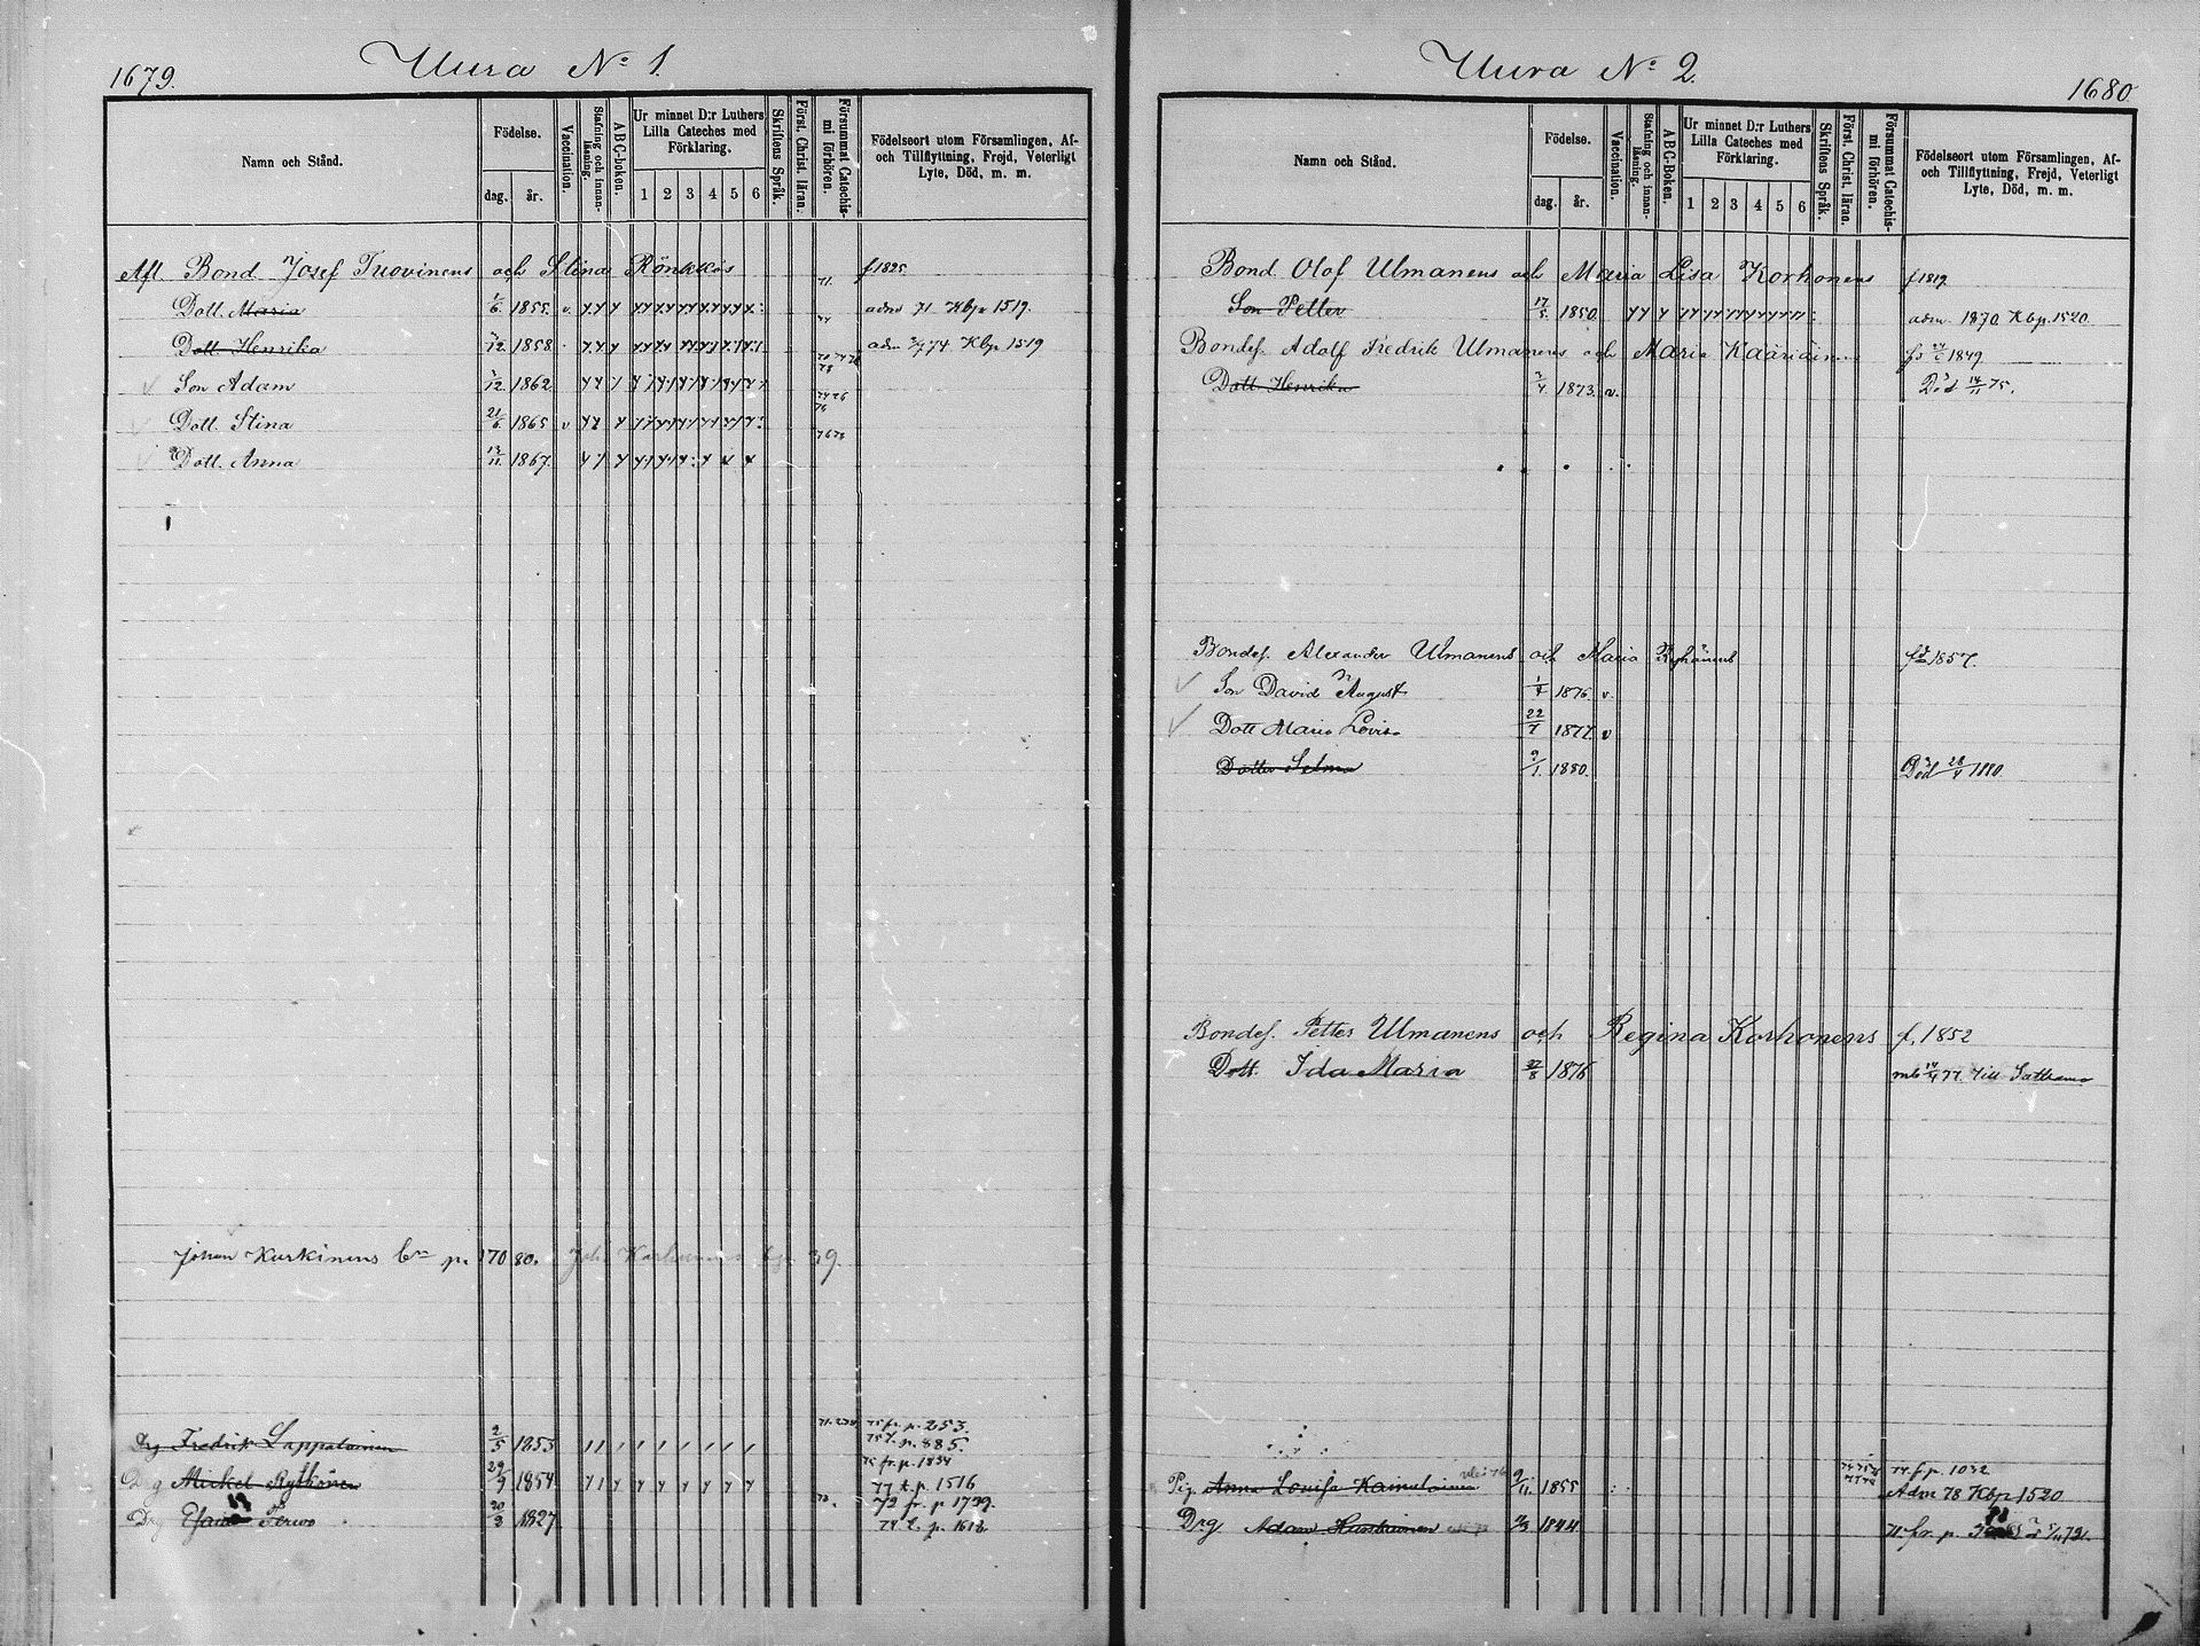 1679.
Uura No 1.
Namn och Stånd.
Födelse.
dag. år.
Vaccination.
Stafning och innan-läsning.
ABC-boken.
Ur minnet D:r Luthers Lilla Cateches med Förklaring.
1 2 3 4 5 6
Skriftens Språk.
Först. Christ. läran.
Försummat Catechis-mi förhören.
Födelseort utom Församlingen, Af- och Tillflyttning, Frejd, Veterligt Lyte, Död, m. m.
Afl. Bond Josef Tuovinens och Stina Rönkkös f 1825.
Dott. Maria 1/6 1855. v. 71. adm 71 Kbp 1519.
Dott. Henrika 12 1858 adm 74 Kbp 1519
Son Adam 12 1862
Dott. Stina 21/6 1865 v
Dott. Anna 11 1867.
Johan Kurkinens bn p. 170 80.
Drg Fredrik Lappalainen 2/5 1855 75 fr. p. 253.
75 t. p. 885.
Drg Mickel Rytkönen 29/9 1854 75 fr. p. 1834
77 t. p. 1516
Drg Terwo 20/3 1827 72 fr. p 1739.
74 t. p. 1618
Uura No 2.
1680
Namn och Stånd.
Födelse.
dag. år.
Vaccination.
Stafning och innan-läsning.
ABC-Boken.
Ur minnet D:r Luthers Lilla Cateches med Förklaring.
1 2 3 4 5 6
Skriftens Språk.
Först. Christ. läran.
Försummat Catechis-mi förhören.
Födelseort utom Församlingen, Af- och Tillflyttning, Frejd, Veterligt Lyte, Död, m. m.
Bond. Olof Ulmanens och Maria Lisa Korhonens f 1819
Son Petter 17/5. 1850. adm. 1870 Kbp. 1520.
Bondes. Adolf Fredrik Ulmanens och Maria Kääriäin 1849
Dott. Henrika 1873. v. Död 75.
Bondes. Alexander Ulmanens och Maria 1857.
Son David August 1876 v.
Dott Maria Lovisa 22/7 1877. v
Dotter Selma 9/1. 1880. Död 28/4 1880.
Bondes. Petter Ulmanens och Regina Korhonens f. 1852
Dott. Ida Maria 1876 77. till
Pig. Anna Lovisa Kainulainen 9/11. 1855 77 f p. 1032
Adm 78 Kbp 1520
Drg Adam 1844 71. fr. p.